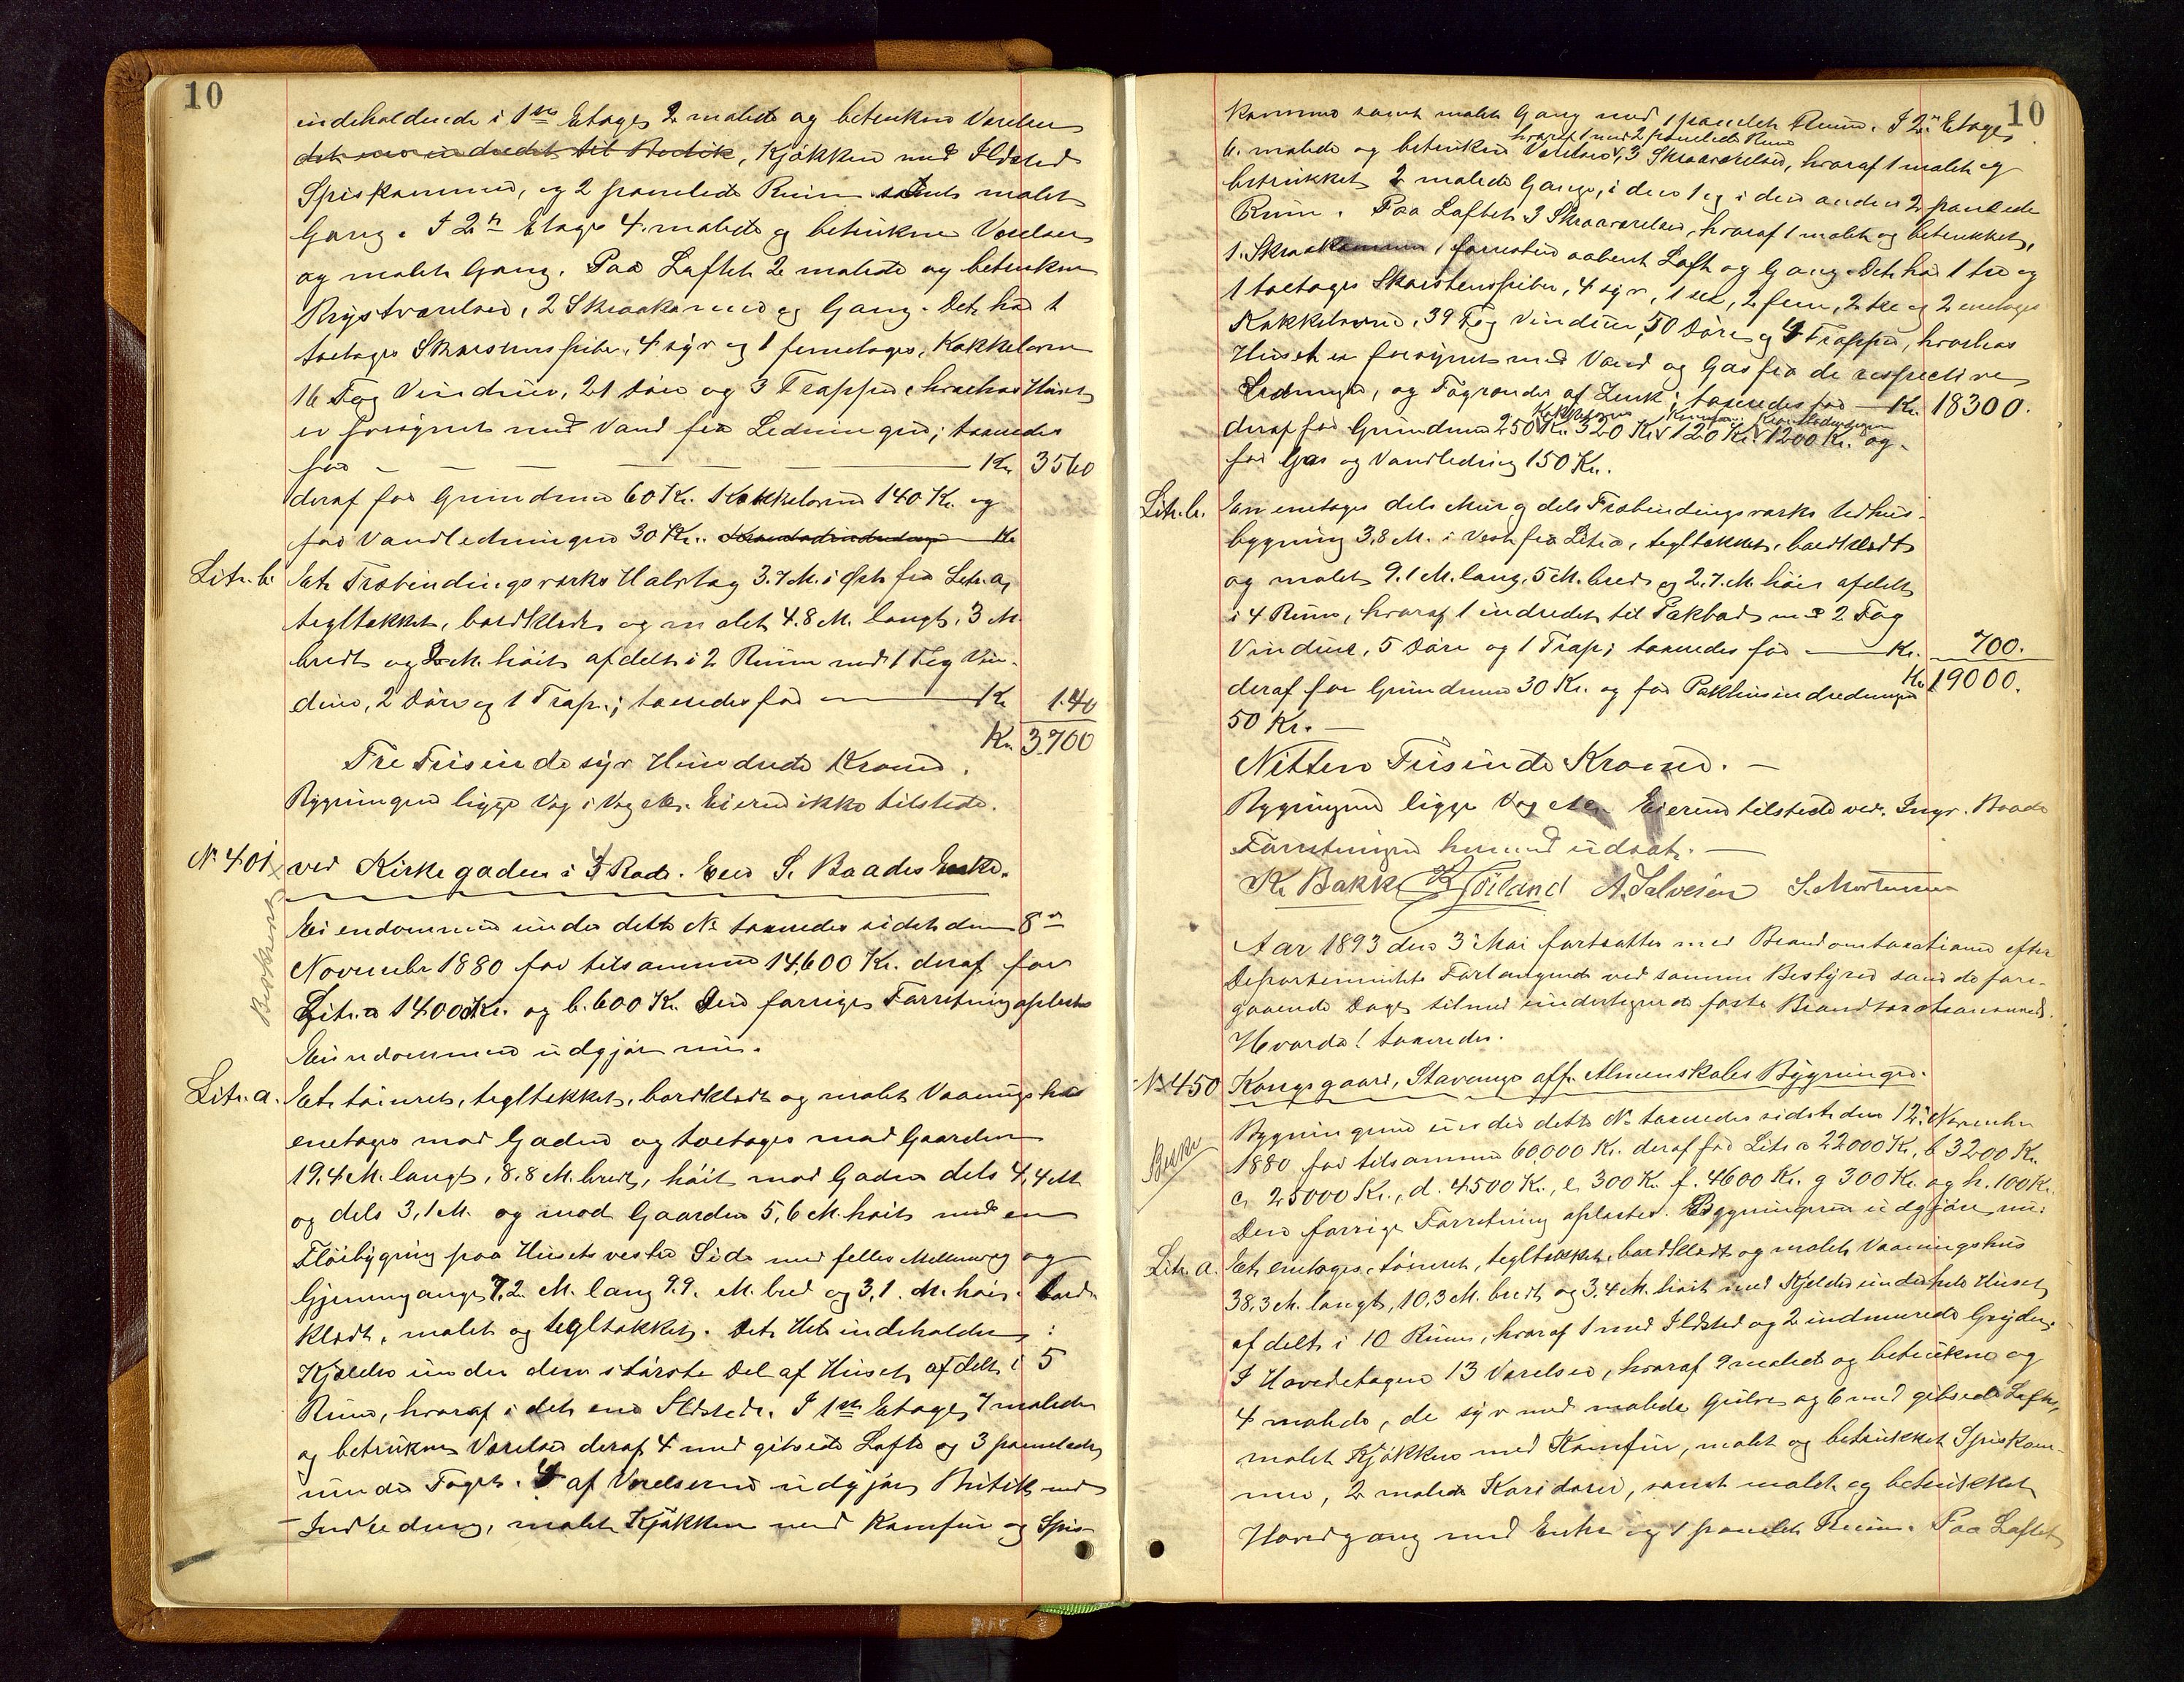 10
indeholdende i 1ste Etage 2 malede og betrukne Værelser
det ene indredet til Butik, Kjøkken med Ildsted
Spiskammer, og 2 panelede Rum samt malet
Gang. I 2n Etage 4 malede og betrukne Værelser
og malet Gang. Paa Loftet 2 malede og betrukne
Brystværelser, 2 Skraakamre og Gang. Det har 1
toetages Skorstenspibe, 4 syv og 1 femetages, Kakkelovn
16 Fag Vinduer, 21 Døre og 3 Trapper, hvorhos Huset
er forsynet med Vand fra Ledningen; taxeredes
for — — — — — Kr. 3560
deraf for Grundmur 60 Kr. Kakkelovne 140 Kr. og
for Vandledningen 30 Kr. Kr
Litr. b. Et Træbindingsværks Halvtag 3.7 M. i Øst fra Litr. a,
tegltækket, bordklædt og malet 4.8 M. langt, 3 M.
bredt og 2 M. høit afdelt i 2 Rum med 1 Fag Vin-
duer, 2 Døre og 1 Trap.; taxeredes for — Kr 140
Kr. 3700
Tre Tusinde syv Hundrede Kroner.
Bygningen ligger Væg i Væg etc. Eieren ikke tilstede.
No 401 ved Kirkegaden i 4 Rode. Eier S. Baades Enke.
Beskrevet
Eiendommen under dette No taxeredes sidst den 8de
November 1880 for tilsammen 14,600 Kr. deraf for
Litr. a 14000 Kr. og b. 600 Kr. Den forrige Forretning oplæstes
Eiendommen udgjør nu.
Litr. a. Et tømret, tegltækket, bordklædt og malet Vaaningshus
enetages mod Gaden og toetages mod Gaarden
19,4 M. langt, 8,8 M. bredt, høit mod Gaden dels 4,4 M
og dels 3,1 M. og mod Gaarden 5,6 M. høit med en
Fløibygning paa Husets vestre Side med felles Mellemvæg og
Gjennemgang 7,2 M. lang 9.9. M. bred og 3,1. M. høi. bord-
klædt, malet og tegltækket. Det Hele indeholder:
Kjelder under den største Del af Huset afdelt i 5
Rum, hvoraf i det ene Ildsted. I 1ste Etage 7 malede
og betrukne Værelser deraf 4 med gibsede Lofte og 3 panelede
under Taget. 4 af Værelserne udgjør Butik med
Indredning, malet Kjøkken med Komfur og Spis-
10
kammer samt malet Gang med 1 panelet Rum. I 2n Etage
hvoraf 1 med 2 panelede Rum
6. malede og betrukne Værelser, 3 Skraaværelser, hvoraf 1 malet og
betrukket 2 malede Gange, i den 1 og i den anden 2 panelede
Rum. Paa Loftet 3 Skraaværelser, hvoraf 1 malet og betrukket,
1. Skraakammer, forresten aabent Loft og Gang. Det har 1 tre og
1 toetages Skorstenspiber, 4 syv, 1 sex, 2 fem, 2 tre og 2 enetages
Kakkelovne, 39 Fag Vinduer, 50 Døre og 4 Trapper, hvorhos
Huset er forsynet med Vand og Gas fra de respective
Ledninger, og Tagrender af Zink; taxeredes for — Kr. 18300.
Kakkelovne Komfur
deraf for Grundmur 250 Kr. 320 Kr. 120 Kr. 1200 Kr. og
for Gas og Vandledning 150 Kr.
Litr. b. En enetages dels Mur og dels Træbindingsværks Udhus-
bygning 3,8 M. i Vest fra Litr. a, tegltækket, bordklædt
og malet 9.1 M. lang, 5 M. bred og 2.7. M. høi afdelt
i 4 Rum, hvoraf 1 indredet til Pakbod med 2 Fag
Vinduer, 5 Døre og 1 Trap; taxeredes for — Kr. 700.
deraf for Grundmur 30 Kr. og for Pakhusindredningen Kr 19000.
50 Kr. —
Nitten Tusinde Kroner. —
Bygningen ligger Væg etc. Eieren tilstede ved. Ingr. Baade
Forretningen hermed udsat. —
K. Bakke K Høiland A. Salvesen S. Mortensen
Aar 1893 den 3 Mai fortsattes med Brandomtaxationen efter
Departementets Forlangende ved samme Bestyrer som de fore-
gaaende Dage tilmed undertegnede faste Brandtaxationsmænd.
Hvorda! taxeredes.
No 450 Kongsgaard, Stavanger off. Almenskoles Bygninger.
Beskr
Bygningerne under dette No taxeredes sidst den 12 November
1880 for tilsammen 60,000 Kr. deraf for Litr a 22000 Kr, b 3200 Kr.
c, 25000 Kr., d. 4500 Kr., e 300 Kr. f. 4600 Kr. g 300 Kr. og h. 100 Kr.
Den forrige Forretning oplæstes. Bygningerne udgjøre nu:
Litr. a. Et enetages, tømret, tegltækket, bordklædt og malet Vaaningshus
38,3 M. langt, 10,3 M. bredt og 3,4 M. høit med Kjelder under hele Huset
afdelt i 10 Rum, hvoraf 1 med Ildsted og 2 indmurede Gryder.
I Hovedetagen 13 Værelser, hvoraf 9 malede og betrukne og
4 malede, de syv med malede Gulve og 6 med gibsede Lofte,
malet Kjøkken med Komfur, malet og betrukket Spiskam-
mer, 2 malede Koridorer, samt malet og betrukket
Hovedgang med Entre og 1 panelet Rum. Paa Loftet